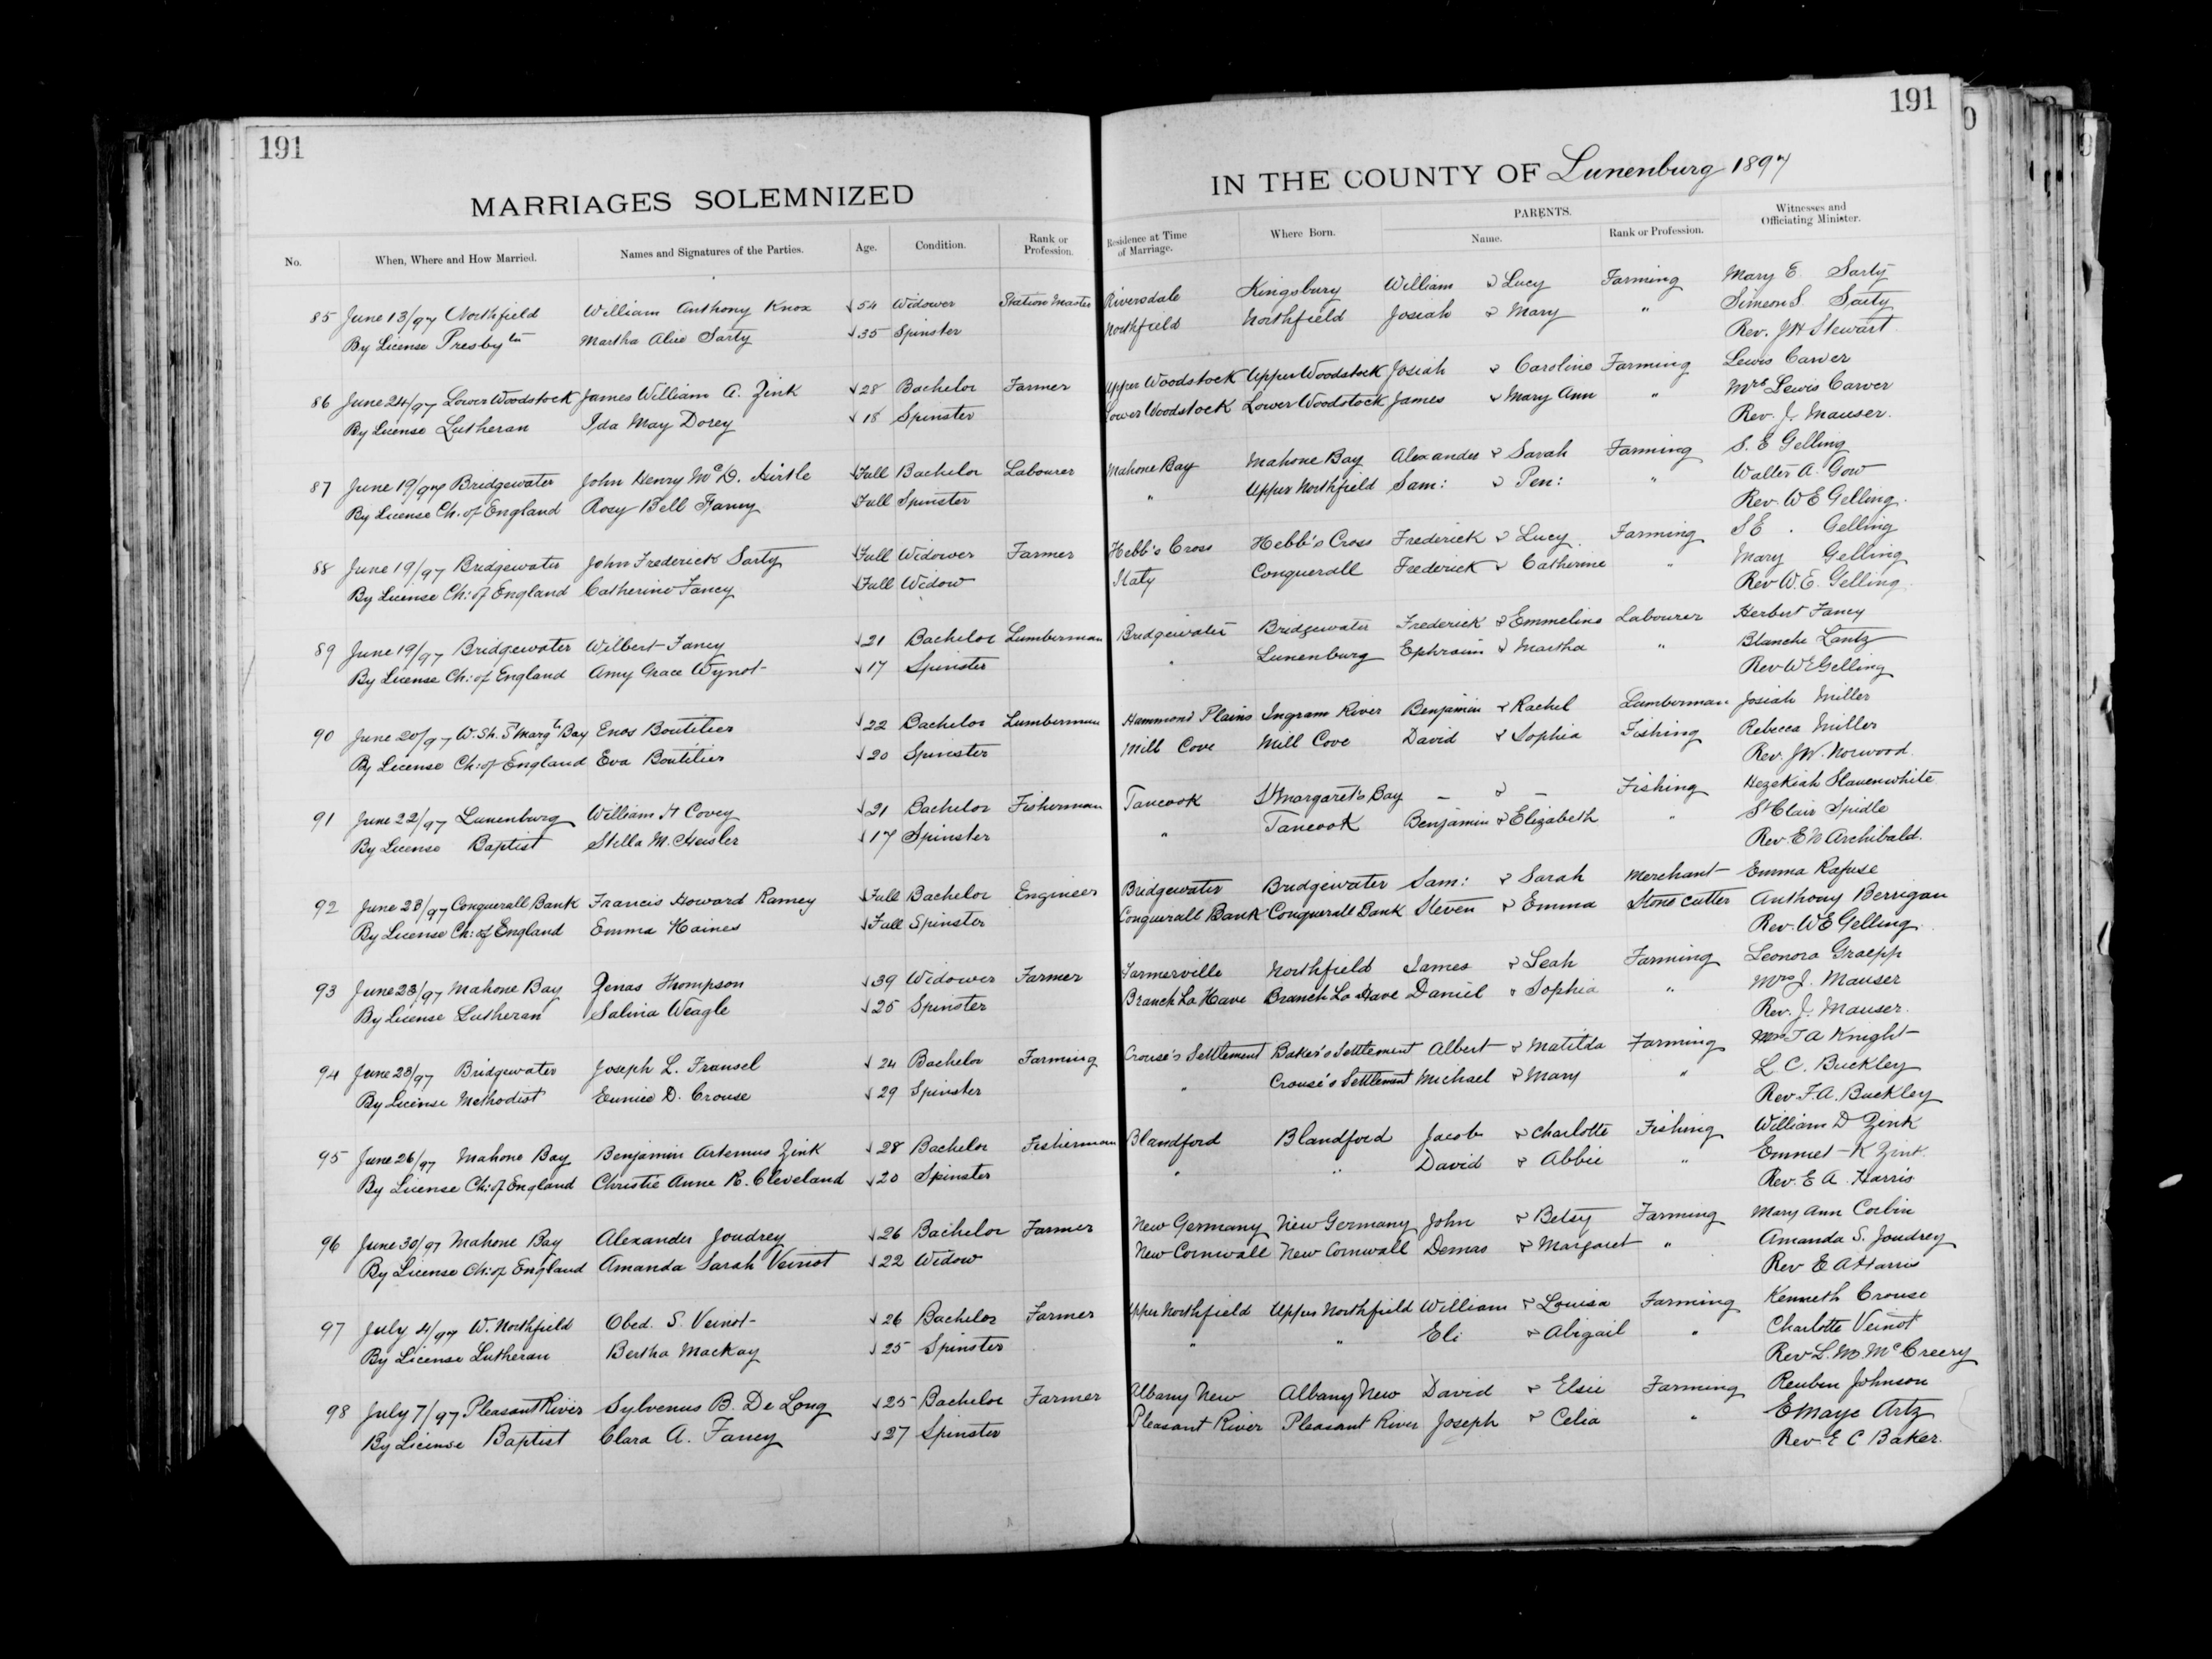 191
191
MARRIAGES SOLEMNIZED
IN THE COUNTY OF Lunenburg 1897
No. When, Where and How Married. Names and Signatures of the Parties. Age. Condition. Rank or Profession. Residence at Time of Marriage. Where Born. PARENTS. Name. Rank or Profession. Witnesses and Officiating Minister.
85 June 13/97 Northfield William Anthony Knox 54 Widower Station Master Riversdale Kingsbury William & Lucy Farming Mary E. Sarty
By License Presbytn Martha Alice Sarty 35 Spinster Northfield Northfield Josiah & Mary " Simeon S. Sarty
Rev. J H Stewart
86 June 24/97 Lower Woodstock James William A. Zink 28 Bachelor Farmer Upper Woodstock Upper Woodstock Josiah & Caroline Farming Lewis Carver
By License Lutheran Ida May Dorey 18 Spinster Lower Woodstock Lower Woodstock James & Mary Ann " Mrs Lewis Carver
Rev. J. Mauser.
87 June 19/97 Bridgewater John Henry McD. Hirtle Full Bachelor Labourer Mahone Bay Mahone Bay Alexander & Sarah Farming S. E Gelling
By License Ch. of England Rosy Bell Fancy Full Spinster " Upper Northfield Sam: & Pen: " Walter A. Gow
Rev. W E Gelling.
88 June 19/97 Bridgewater John Frederick Sarty Full Widower Farmer Hebb's Cross Hebb's Cross Frederick & Lucy Farming S E. Gelling
By License Ch: of England Catherine Fancy Full Widow Italy Conquerall Frederick & Catherine " Mary Gelling
Rev W. E. Gelling
89 June 19/97 Bridgewater Wilbert Fancy 21 Bachelor Lumberman Bridgewater Bridgewater Frederick & Emmeline Labourer Herbert Fancy
By License Ch: of England Amy Grace Wynot 17 Spinster " Lunenburg Ephraim & Martha " Blanche Lantz
Rev W E Gelling
90 June 20/97 W. Sh. St Margts Bay Enos Boutilier 22 Bachelor Lumberman Hammond Plains Ingram River Benjamin & Rachel Lumberman Josiah Miller
By License Ch: of England Eva Boutilier 20 Spinster Mill Cove Mill Cove David & Sophia Fishing Rebecca Miller
Rev. J W. Norwood.
91 June 22/97 Lunenburg William H Covey 21 Bachelor Fisherman Tancook St Margaret's Bay – & – Fishing Hezekiah Slauenwhite
By License Baptist Stella M. Heisler 17 Spinster " Tancook Benjamin & Elizabeth " St Clair Spidle
Rev. E N Archibald.
92 June 23/97 Conquerall Bank Francis Howard Ramey Full Bachelor Engineer Bridgewater Bridgewater Sam: & Sarah Merchant Emma Rafuse
By License Ch: of England Emma Haines Full Spinster Conquerall Bank Conquerall Bank Steven & Emma Stone cutter Anthony Berrigan
Rev. W E Gelling.
93 June 23/97 Mahone Bay Zenas Thompson 39 Widower Farmer Farmerville Northfield James & Leah Farming Leonora Graepp
By License Lutheran Salina Weagle 25 Spinster Branch La Have Branch La Have Daniel & Sophia " Mrs J. Mauser
Rev. J. Mauser.
94 June 23/97 Bridgewater Joseph L. Fransel 24 Bachelor Farming Crouse's Settlement Baker's Settlement Albert & Matilda Farming Mrs T A Knight
By License Methodist Eunice D. Crouse 29 Spinster " Crouse's Settlement Michael & Mary " L C. Buckley
Rev F. A. Buckley
95 June 26/97 Mahone Bay Benjamin Artemus Zink 28 Bachelor Fisherman Blandford Blandford Jacob & Charlotte Fishing William D Zink
By License Ch: of England Christie Anne R. Cleveland 20 Spinster " " David & Abbie " Emmet K Zink.
Rev. E A. Harris
96 June 30/97 Mahone Bay Alexander Joudrey 26 Bachelor Farmer New Germany New Germany John & Betsy Farming Mary Ann Corbin
By License Ch: of England Amanda Sarah Veinot 22 Widow New Cornwall New Cornwall Demas & Margaret " Amanda S. Joudrey
Rev E A Harris
97 July 4/97 W. Northfield Obed. S. Veinot 26 Bachelor Farmer Upper Northfield Upper Northfield William & Louisa Farming Kenneth Crouse
By License Lutheran Bertha MacKay 25 Spinster " " Eli & Abigail " Charlotte Veinot
Rev L. M. McCreery
98 July 7/97 Pleasant River Sylvenus B. De Long 25 Bachelor Farmer Albany New Albany New David & Elsie Farming Reuben Johnson
By License Baptist Clara A. Fancy 27 Spinster Pleasant River Pleasant River Joseph & Celia " E Maye Artz
Rev E C Baker.